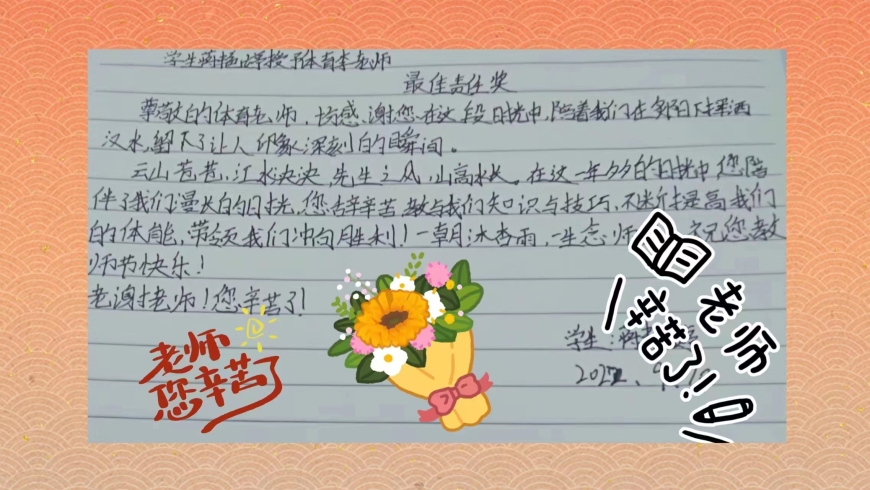 学生 授予体育李老师
最佳责任奖
尊敬的体育老师,您在这段时光中,陪着我们在夕阳下挥洒
汉水,留下了让人印象深刻的瞬间。
云山苍苍,江水泱泱,先生之风,山高水长。在这一年多的时光中,您陪
伴了我们漫长的时光,您辛辛苦苦教与我们知识与技巧,不断提高我们
的体能,带领我们冲向胜利!一朝沐杏雨,一生念师 祝您教
师节快乐!
老师!您辛苦了!
学生:
老师
您辛苦了
老师
辛苦了!